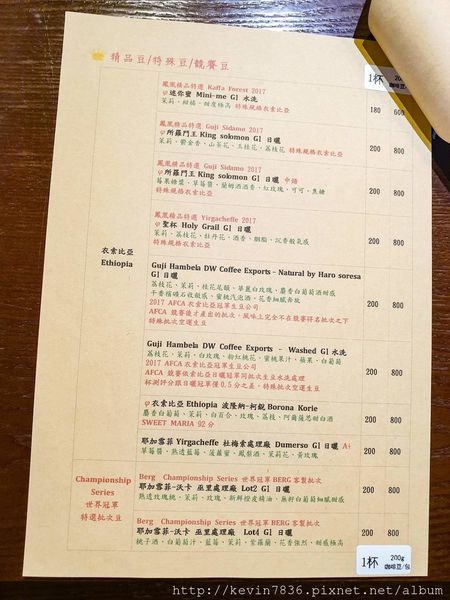 精品豆/特殊豆/競賽豆
1杯 200g
咖啡豆/
鳳凰精品特選 Kaffa Forest 2017
迷你蜜 Mini-me G1 水洗
180 600
茉莉、柑橘、甜度極高 特殊規格衣索比亞
鳳凰精品特選 Guji Sidamo 2017
所羅門王 King solomon G1 日曬
200 800
茉莉、鬱金香、山茶花、玉桂花、荔枝花 特殊規格衣索比亞
鳳凰精品特選 Guji Sidamo 2017
所羅門王 King solomon G1 日曬 中焙
200 800
莓果糖漿、草莓醬、蘭姆酒酒香、紅玫瑰、可可、焦糖
特殊規格衣索比亞
鳳凰精品特選 Yirgacheffe 2017
聖杯 Holy Grail G1 日曬
200 800
茉莉、荔枝花、牡丹花、酒香、胭脂、沉香般氣感
特殊規格衣索比亞
衣索比亞
Ethiopia
Guji Hambela DW Coffee Exports - Natural by Haro soresa
G1 日曬
荔枝花、茉莉、桂花尾韻、草薰白玫瑰、麝香白葡萄酒甜感
200 800
2017 AFCA 衣索比亞冠軍生豆公司
AFCA 競賽後才產出的批次，風味上完全不在競賽得名批次之下
特殊批次空運生豆
Guji Hambela DW Coffee Exports - Washed G1 水洗
荔枝花、茉莉、白玫瑰、粉紅桃花、蜜桃果汁、蘋果、白葡萄
2017 AFCA 衣索比亞冠軍生豆公司
200 800
AFCA 競賽依索比亞日曬冠軍同批次生豆水洗處理
杯測評分跟日曬冠軍僅 0.5 分之差，特殊批次空運生豆
衣索比亞 Ethiopia 波隆納-柯銳 Borona Korie
麝香白葡萄、茉莉、白百合、玫瑰、荔枝、阿薩姆思甜白酒
200 800
SWEET MARIA 92 分
耶加雪菲 Yirgacheffe 杜梅索處理廠 Dumerso G1 日曬 A+
200 800
草莓醬、熟透藍莓、菠蘿蜜、鳳梨酒、茉莉花、黃玫瑰
Championship
Series
世界冠軍
特選批次豆
Berg Championship Series 世界冠軍 BERG 客製批次
耶加雪菲-沃卡 巫里處理廠 Lot2 G1 日曬
200 800
熟透玫瑰桃、茉莉、玫瑰、新鮮橙皮精油、無籽白葡萄細膩甜感
Berg Championship Series 世界冠軍 BERG 客製批次
耶加雪菲-沃卡 巫里處理廠 Lot4 G1 日曬
200 800
桃子酒、白葡萄汁、藍莓、茉莉、紫羅蘭、花香強烈、甜感極高
1杯 200g
咖啡豆/包
http://kevin7836.pixnet.net/album